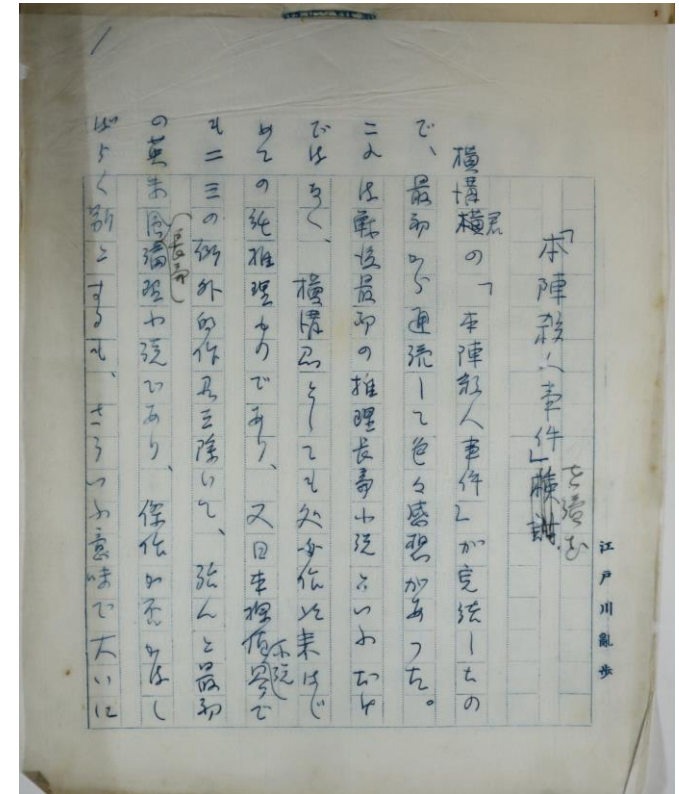 「本陣殺人事件」を読む
江戸川亂歩
横溝君の「本陣殺人事件」が完結したの
で、最初から通読して色々感想があつた。
これは戦後最初の推理長篇小説といふだけ
ではなく、横溝君としても処女作以来はじ
めての純推理ものであり、又日本探偵小説で
も二三の例外的作品を除いて、殆んど最初
の英米風論理小説であり、傑作か否かはし
ばらく別とするも、さういふ意味で大いに